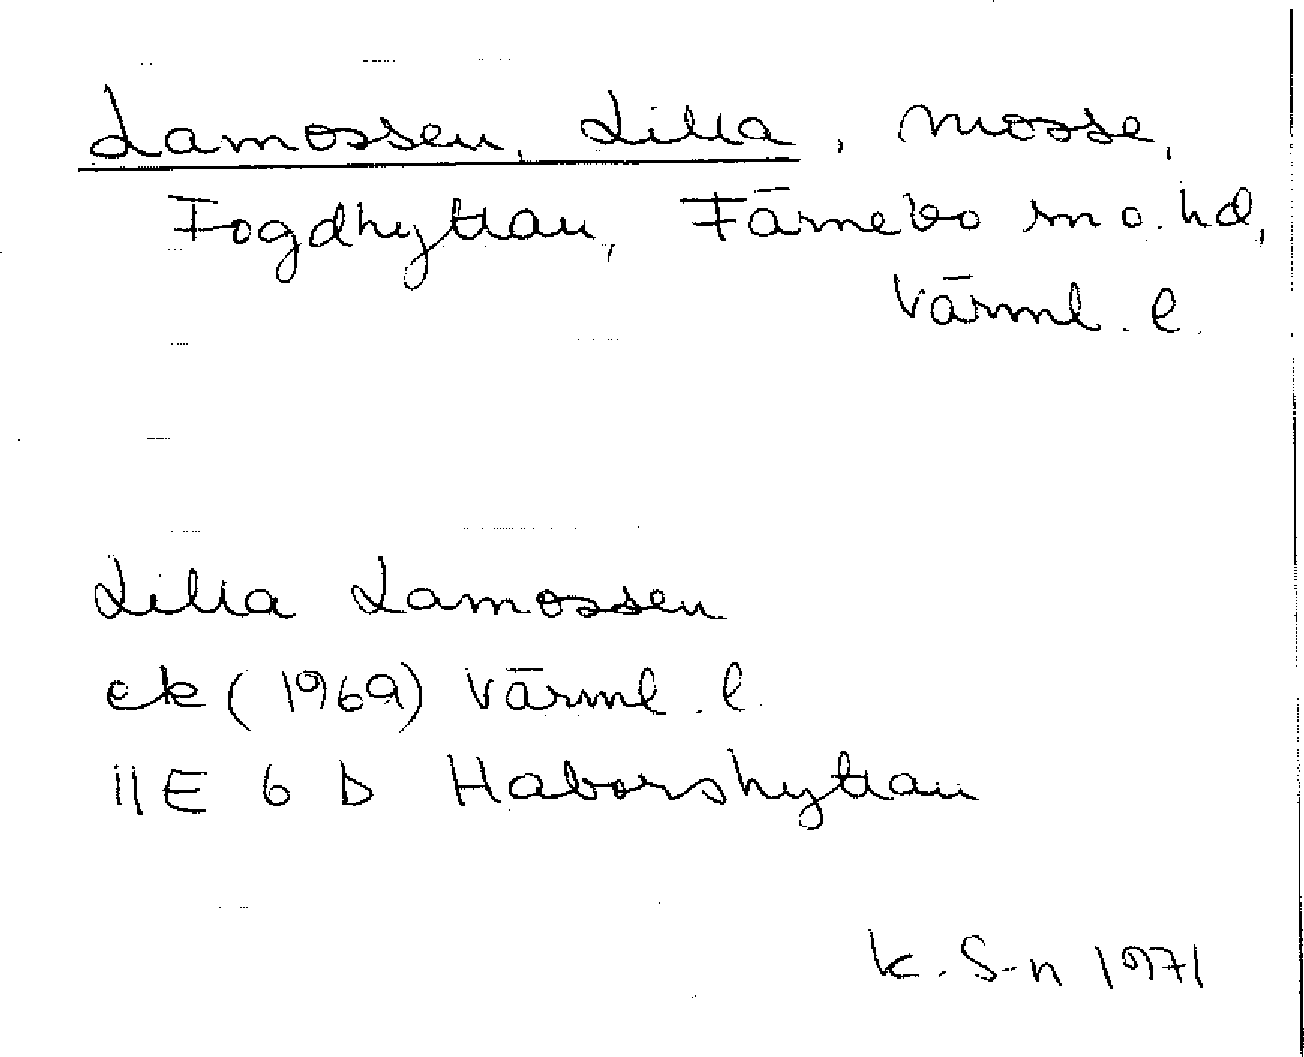 Lamossen, Lilla, mosse,
Fogdhyttan, Färnebo sn o. hd,
Värml. l.
Lilla Lamossen
ek (1969) Värml. l.
11E 6 D Haborshyttan
K. S-n 1971